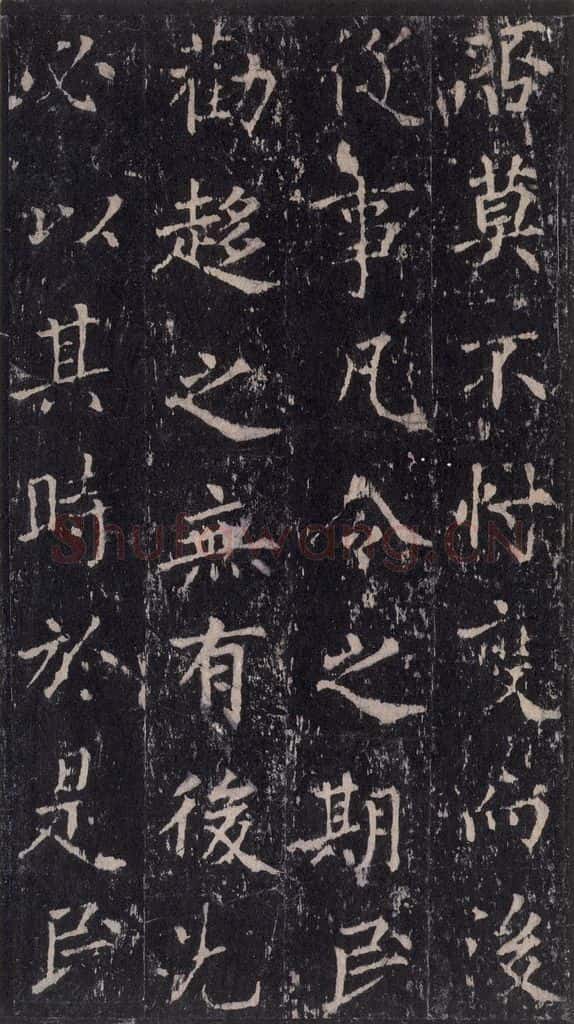 否莫不忖度而後
從事凡令之期民
勸趍之無有後先
必以其時於是民
Shufawang.CN